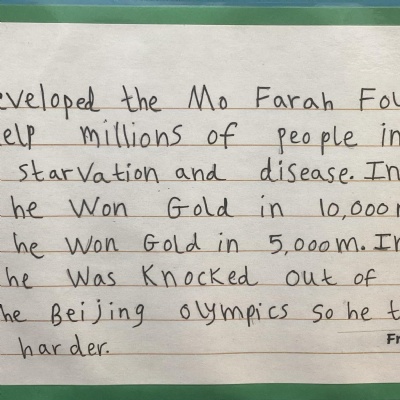 eveloped the Mo Farah Fou
elp millions of people in
starvation and disease. In
he Won Gold in 10,000m
he Won Gold in 5,000m. In
he Was Knocked out of
he Beijing olympics so he t
harder.
Fr